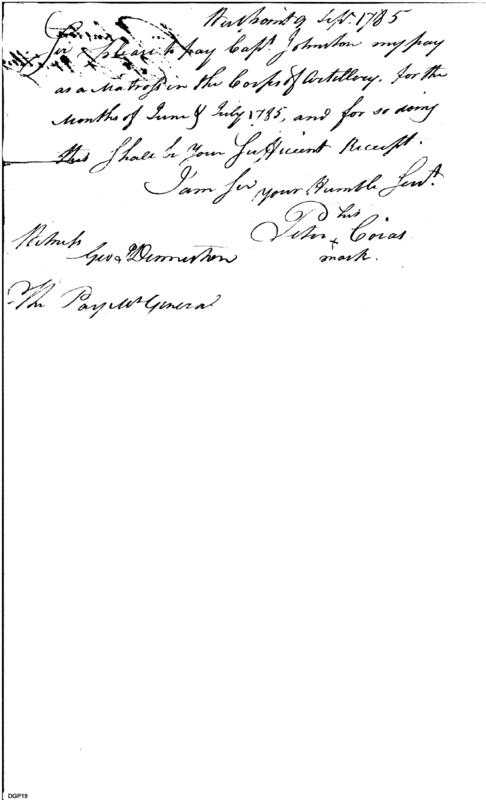 Westpoint 9 Sept. 1785
Sir Please to pay Capt. Johnston my pay
as a Matross in the Corps of Artillery, for the
Months of June & July 1785, and for so doing
this Shall be Your Sufficient Receipt.
I am Sir your Humble Servt.
his
Peter x Coras
mark.
Witness
Geo. Denniston
The Pay Mr. General
DGP19